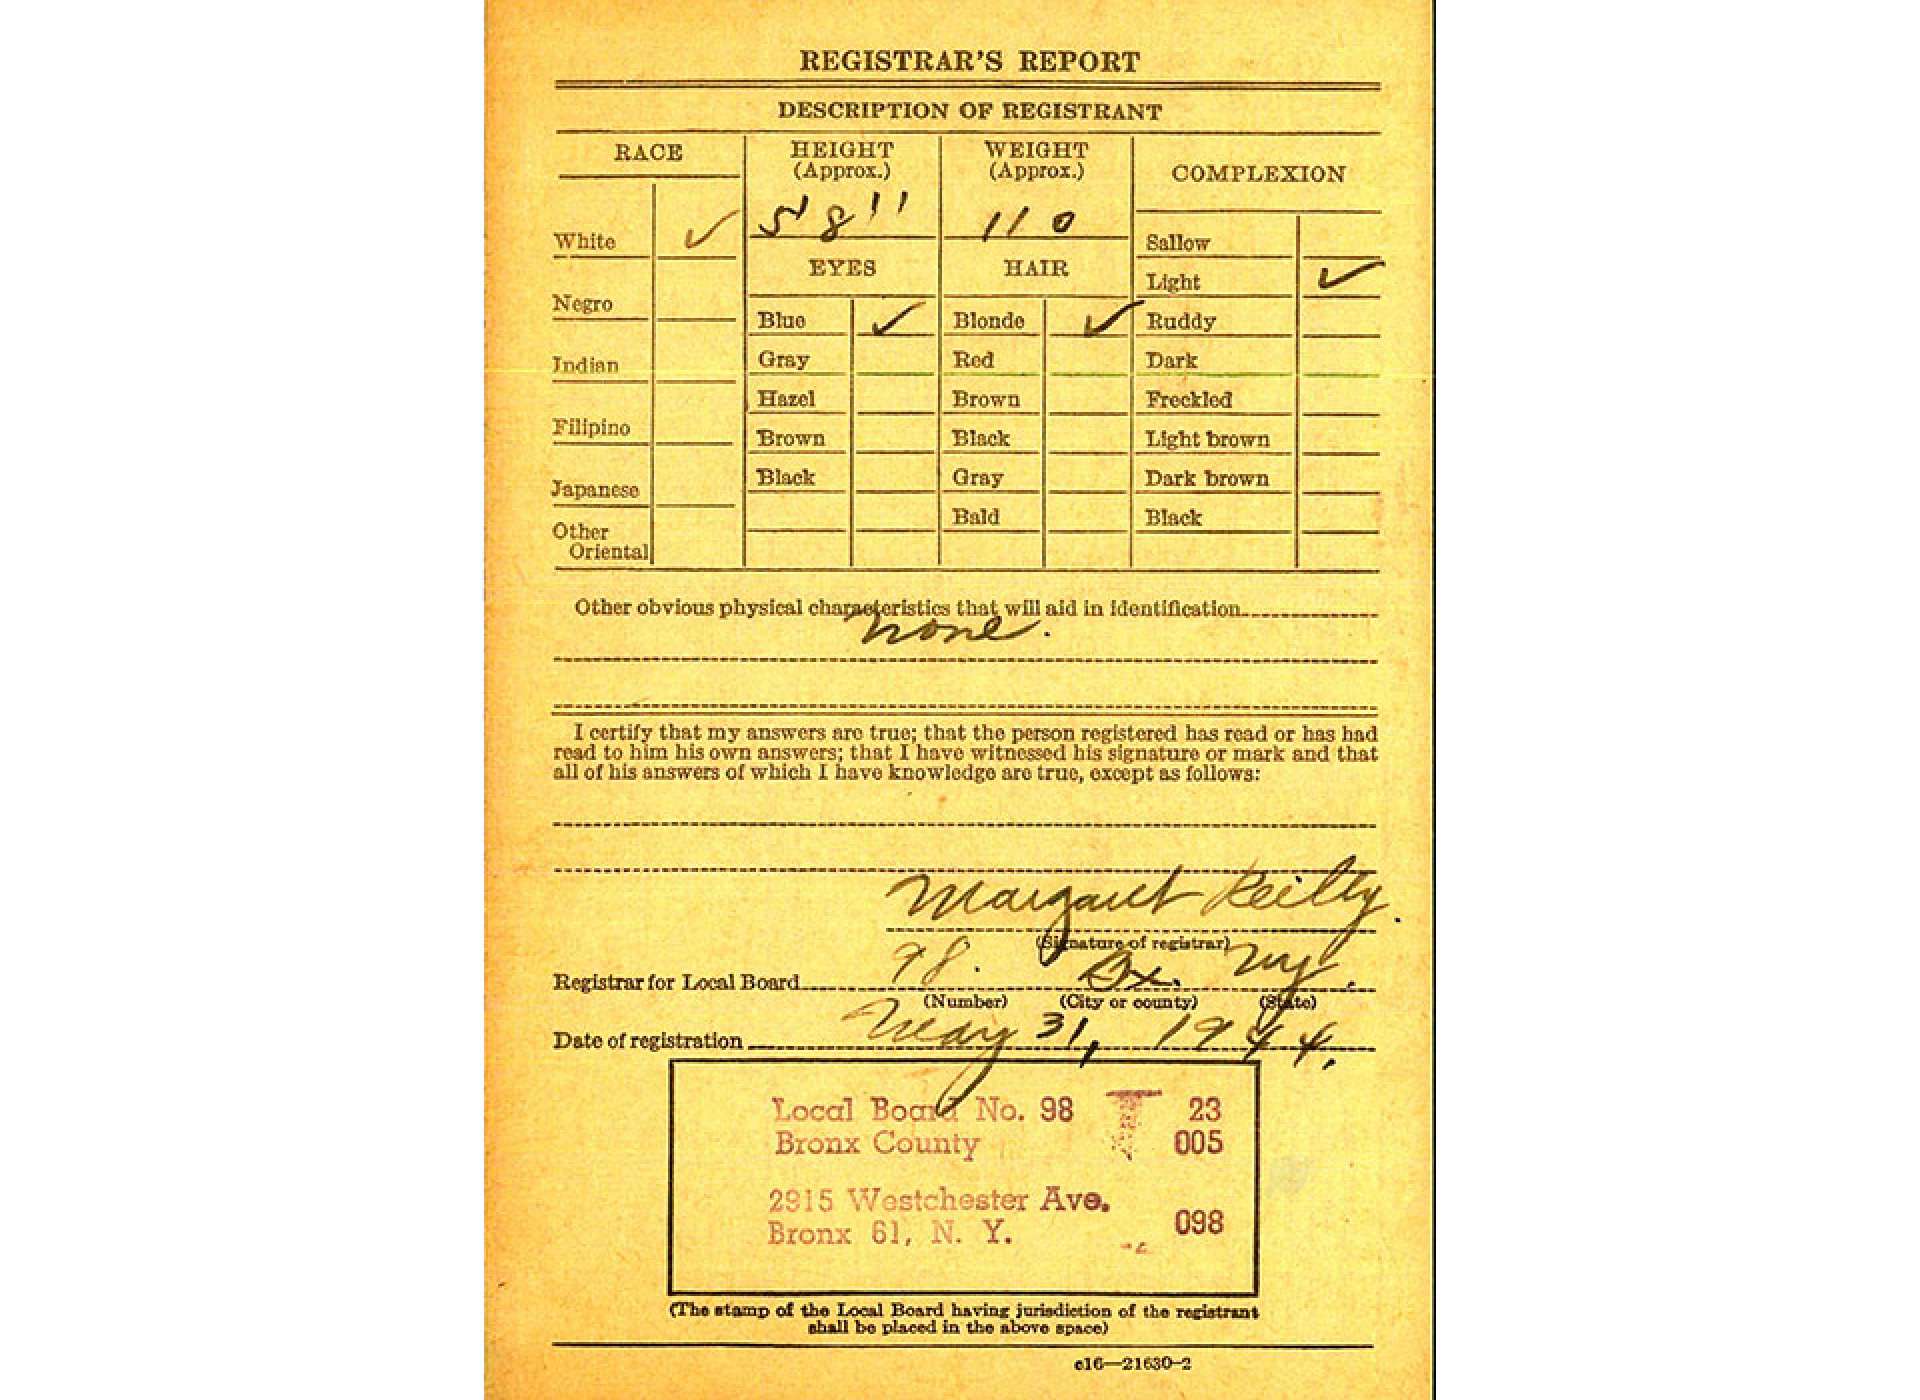 REGISTRAR'S REPORT
DESCRIPTION OF REGISTRANT
RACE HEIGHT (Approx.) WEIGHT (Approx.) COMPLEXION
5' 8" 110
White ✓ Sallow
EYES HAIR
Light ✓
Negro
Blue ✓ Blonde ✓ Ruddy
Indian Gray Red Dark
Hazel Brown Freckled
Filipino Brown Black Light brown
Japanese Black Gray Dark brown
Bald Black
Other
Oriental
Other obvious physical characteristics that will aid in identification
None.
I certify that my answers are true; that the person registered has read or has had
read to him his own answers; that I have witnessed his signature or mark and that
all of his answers of which I have knowledge are true, except as follows:
Margaret Reilly.
(Signature of registrar)
Registrar for Local Board 98. Bx. Ny.
(Number) (City or county) (State)
Date of registration May 31, 1944.
Local Board No. 98 23
Bronx County 005
2915 Westchester Ave.
098
Bronx 61, N. Y.
(The stamp of the Local Board having jurisdiction of the registrant
shall be placed in the above space)
c16—21630-2